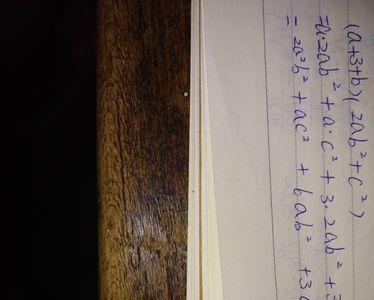 (a+3+b)(2ab²+c²)
=a·2ab²+a·c²+3·2ab²+3
=2a²b²+ac²+6ab²+3